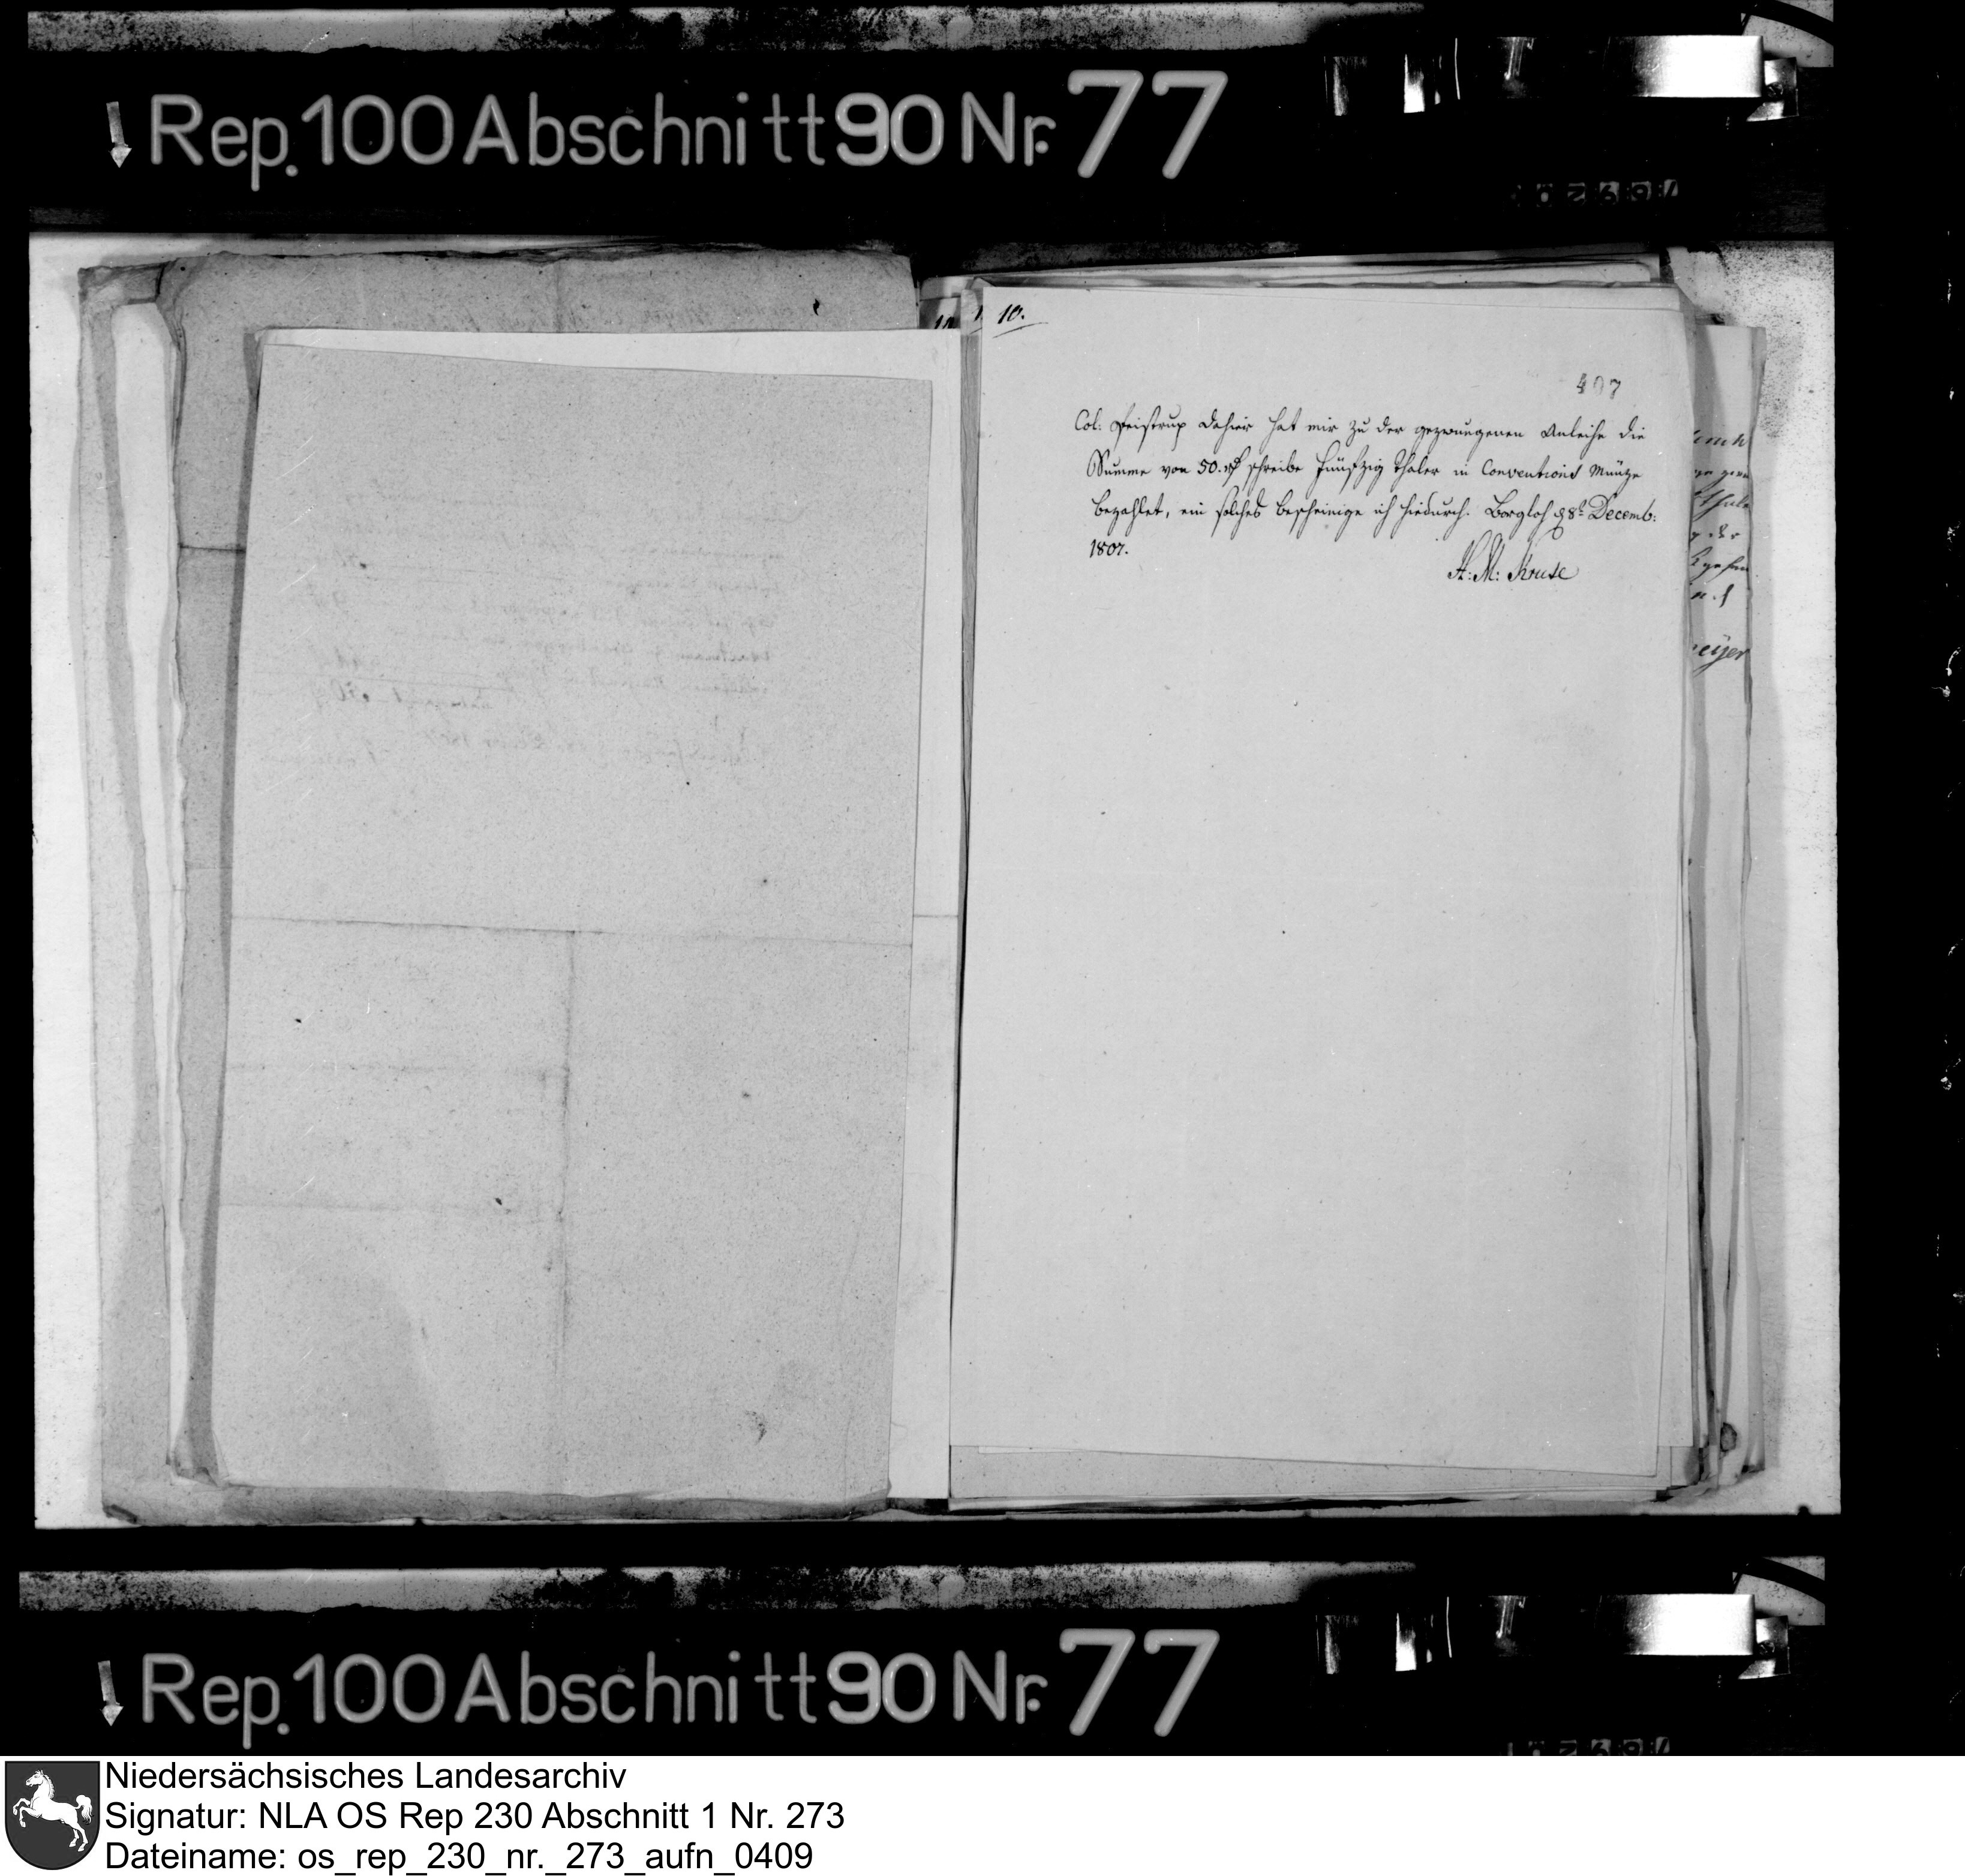 Rep. 100 Abschnitt 90 Nr. 77
10.
407
Col: Peistrup dahier hat mir zu der gezwungenen Anleihe die
Summe von 50. rt schreibe Fünfzig Thaler in Conventions Münze
bezahlet, ein solches bescheinige ich hiedurch. Borgloh Decemb:
1807.
H: M: Kruse
Rep. 100 Abschnitt 90 Nr. 77
Niedersächsisches Landesarchiv
Signatur: NLA OS Rep 230 Abschnitt 1 Nr. 273
Dateiname: os_rep_230_nr._273_aufn_0409